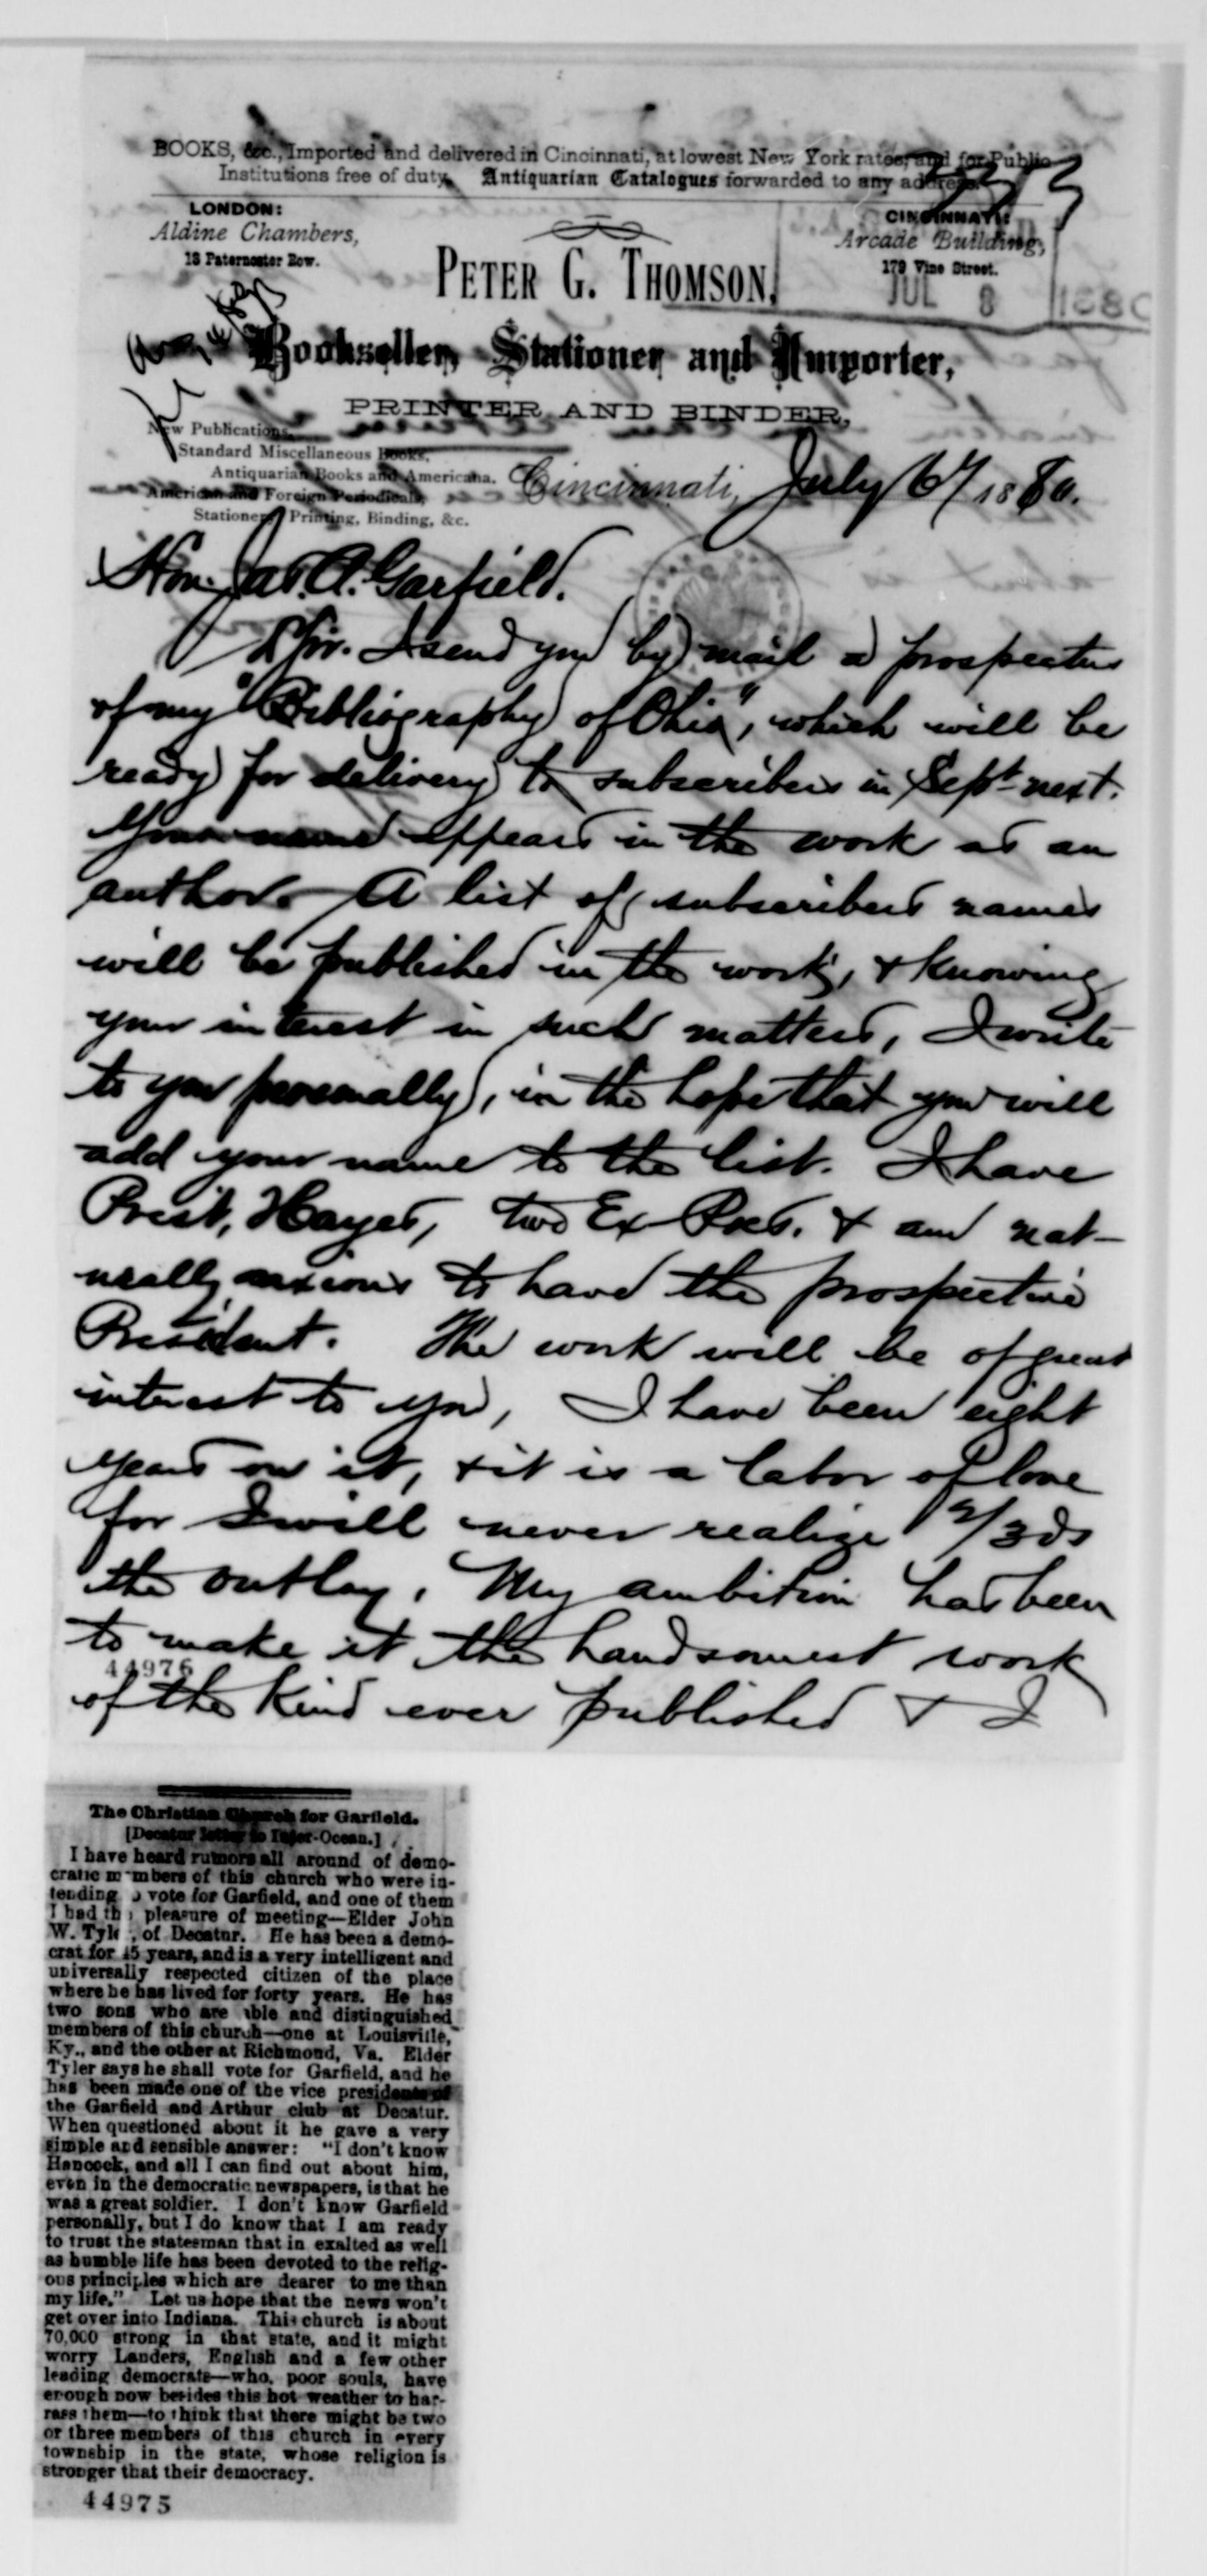 BOOKS, &c., Imported and delivered in Cincinnati, at lowest New York rates, and for Public
Institutions free of duty. Antiquarian Catalogues forwarded to any address.
LONDON:
Aldine Chambers,
18 Paternoster Row.
CINCINNATI:
Arcade Building,
179 Vine Street.
PETER G. THOMSON,
JUL 8 1880
Bookseller, Stationer and Importer,
PRINTER AND BINDER,
New Publications,
Standard Miscellaneous Books,
Antiquarian Books and Americana.
American and Foreign Periodicals,
Stationery, Printing, Binding, &c.
Cincinnati, July 6th 1880.
Hon. Jas. A. Garfield.
Sir. I send you by mail a prospectus
of my "Bibliography of Ohio", which will be
ready for delivery to subscribers in Sept. next.
Your name appears in the work as an
author. A list of subscribers names
will be published in the work, & knowing
your interest in such matters, I write
to you personally, in the hope that you will
add your name to the list. I have
Prest. Hayes, two Ex-Pres. & am nat-
urally anxious to have the prospective
President. The work will be of great
interest to you, I have been eight
years on it, & it is a labor of love
for I will never realize 2/3ds
the outlay. My ambition has been
to make it the handsomest work
44976
of the kind ever published & I
The Christian Church for Garfield.
[Decatur letter to Inter-Ocean.]
I have heard rumors all around of demo-
cratic members of this church who were in-
tending o vote for Garfield, and one of them
I had th pleasure of meeting—Elder John
W. Tyle , of Decatur. He has been a demo-
crat for 45 years, and is a very intelligent and
universally respected citizen of the place
where he has lived for forty years. He has
two sons who are able and distinguished
members of this church—one at Louisville,
Ky., and the other at Richmond, Va. Elder
Tyler says he shall vote for Garfield, and he
has been made one of the vice presidents of
the Garfield and Arthur club at Decatur.
When questioned about it he gave a very
simple and sensible answer: "I don't know
Hancock, and all I can find out about him,
even in the democratic newspapers, is that he
was a great soldier. I don't know Garfield
personally, but I do know that I am ready
to trust the statesman that in exalted as well
as humble life has been devoted to the relig-
ous principles which are dearer to me than
my life." Let us hope that the news won't
get over into Indiana. This church is about
70,000 strong in that state, and it might
worry Landers, English and a few other
leading democrats—who, poor souls, have
enough now besides this hot weather to har-
rass them—to think that there might be two
or three members of this church in every
township in the state, whose religion is
stronger that their democracy.
44975